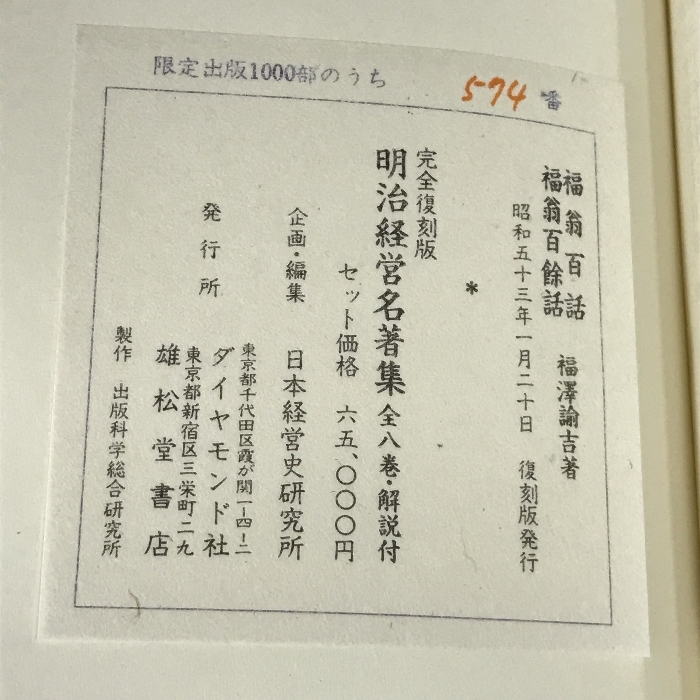 限定出版1000部のうち 574 番
福翁百話
福翁百餘話 福澤諭吉著
昭和五十三年一月二十日 復刻版発行
*
完全復刻版
明治経営名著集 全八巻・解説付
セット価格 六五、〇〇〇円
企画・編集 日本経営史研究所
東京都千代田区霞が関一ー四ー二
発行所 ダイヤモンド社
東京都新宿区三栄町二九
雄松堂書店
製作 出版科学総合研究所